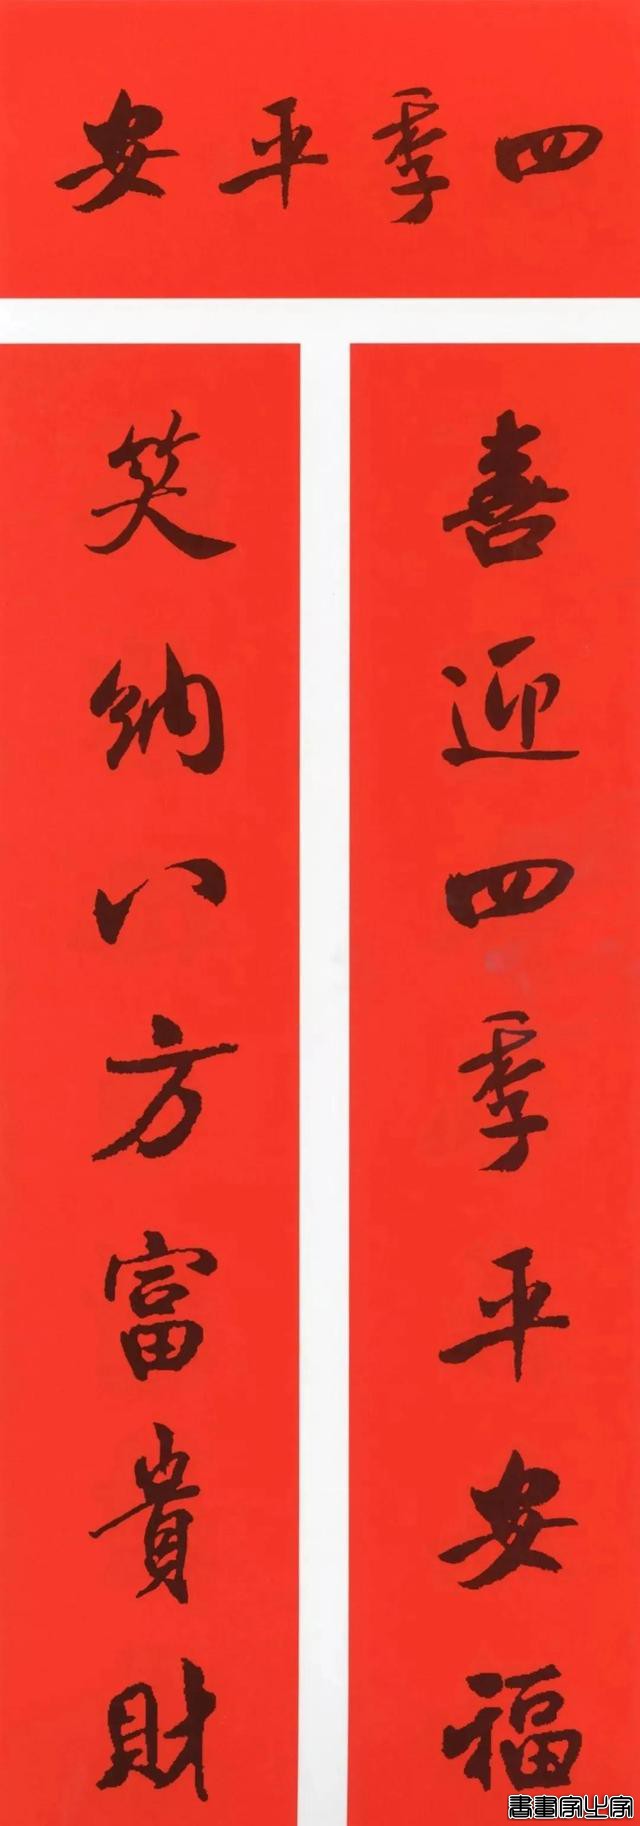 四季平安
喜迎四季平安福
笑納八方富貴財
書畫家必字